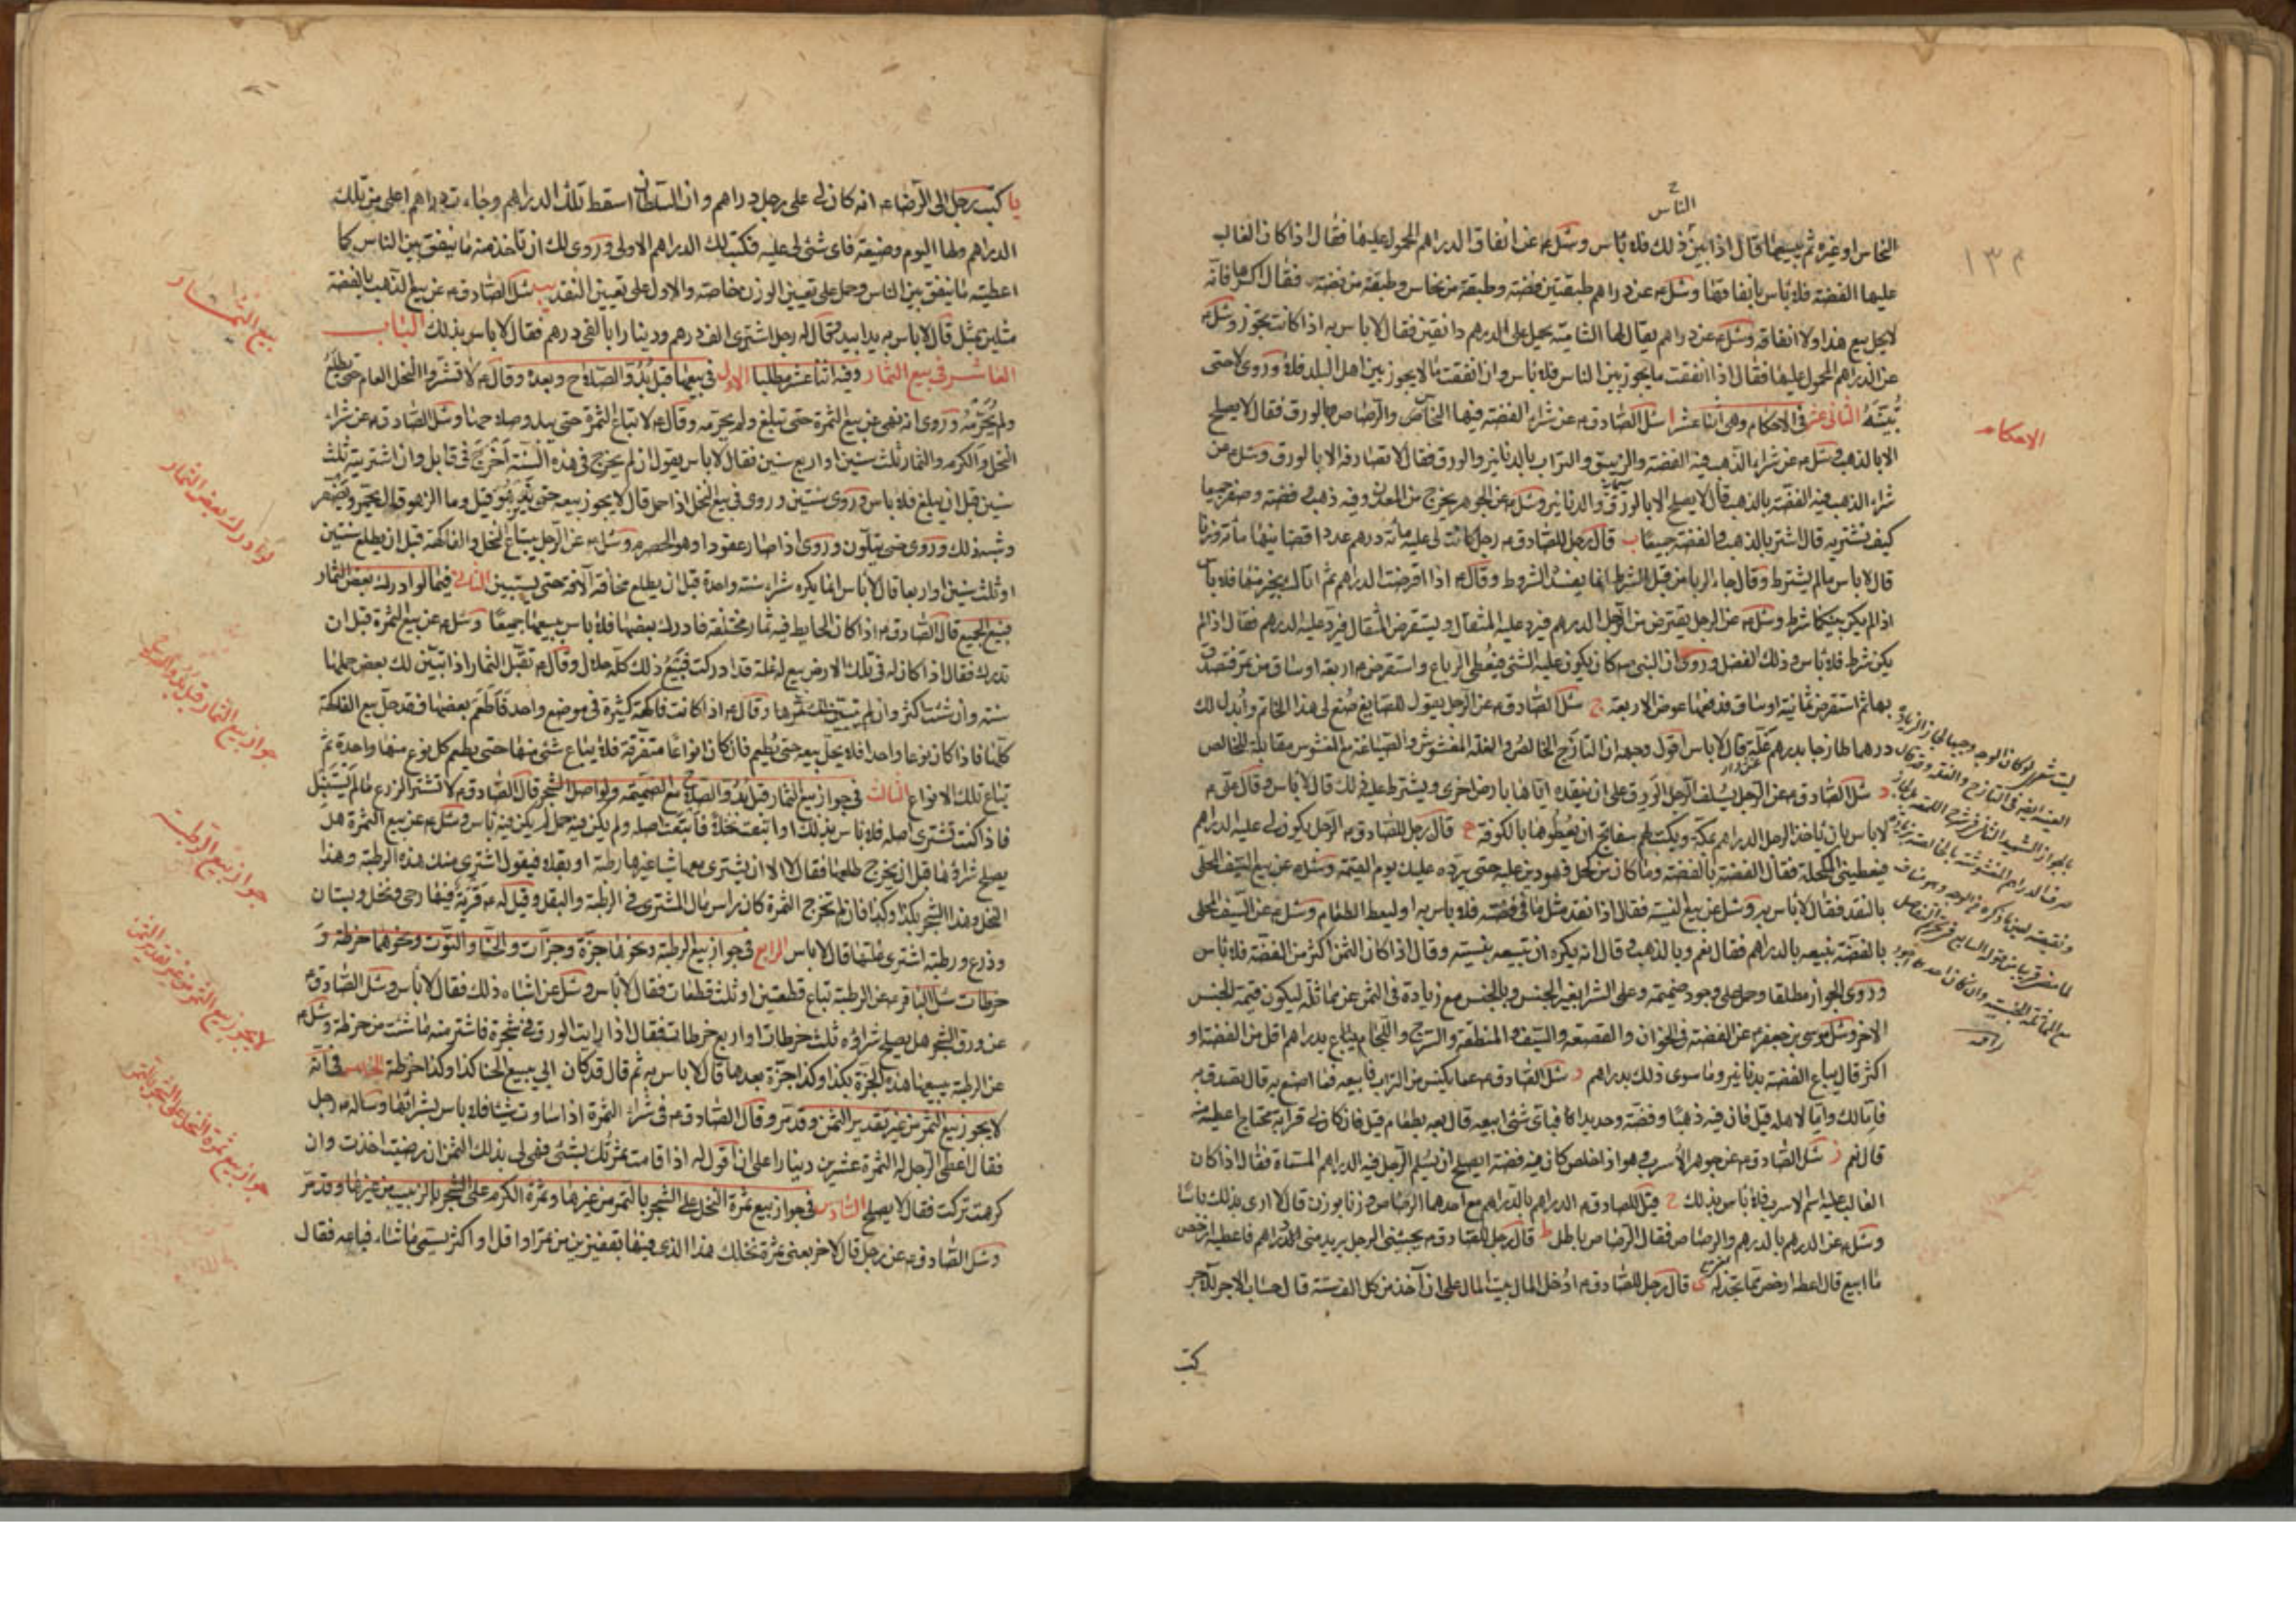 الناس
النحاس او غيره ثم يبيعها قال اذا بين ذلك فلا باس وسئل ع عن انفاق الدراهم المحمول عليها فقال اذا كان الغالب
عليها الفضة فلا باس بانفاقها وسئل ع عن دراهم طبقتين فضة وطبقة من نحاس وطبقة من فضة فقال اكسرها فانه
لا يحل بيع هذا ولا انفاقه وسئل ع عن دراهم يقال لها الشامية يحمل على الدرهم دانقين فقال لا باس به اذا كانت تجوز وسئل ع
عن الدراهم المحمول عليها فقال اذا انفقت ما يجوز بين الناس فلا باس وان انفقت ما لا يجوز بين اهل البلد فلا وروى لا حتى
تبينه الثانى عشر فى الاحكام وهى اثنا عشر ا سئل الصادق ع عن شراء الفضة فيها النحاس والرصاص بالورق فقال لا يصلح
الا بالذهب وسئل ع عن شراء الذهب فيه الفضة والزيبق والتراب بالدنانير والورق فقال لا تصارفه الا بالورق وسئل عن
شراء الذهب فيه الفضة بالذهب قال لا يصلح الا بالورق والدنانير وسئل ع عن الجوهر يخرج من المعدن وفيه ذهب وفضة وصفر جميعا
كيف نشتريه قال اشتر بالذهب والفضة جميعا ب قال رجل للصادق ع رجل كانت لى عليه مائة درهم عددا قضانيها مائة وزنا
قال لا باس ما لم يشترط وقال جاء الربا من قبل الشرط انما يفسد الشروط وقال ع اذا اقرضت الدراهم ثم اتاك بخير منها فلا باس
اذا لم يكن بينكما شرط وسئل ع عن الرجل يقترض من الرجل الدرهم فيرد عليه المثقال ويستقرض المثقال فيرد عليه الدرهم فقال اذا لم
يكن شرط فلا باس وذلك الفضل وروى ان النبى ص كان يكون عليه الثنى فيعطى الرباع واستقرض ص اربعة اوساق من تمر فتصدق
بها ثم استقرض ثمانية اوساق فدفعها عوض الاربعة ج سئل الصادق ع عن الرجل يقول للصايغ صنع لى هذا الخاتم وابدل لك
درهما طازجا بدرهم غلة قال لا باس اقول وجهه ان التازج الخالص والغلة المغشوش والصياغة مع المغشوس مقابلة للخالص
د سئل الصادق ع عن الرجل يسلف الرجل الورق على ان ينقده اياها بارض اخرى ويشترط عليه ذلك قال لا باس وقال على ع
لا باس بان ياخذ الرجل الدراهم بمكة ويكتب لهم سفاتج ان يعطوها بالكوفة ه قال رجل للصادق ع الرجل يكون لى عليه الدراهم
فيعطينى المكحلة فقال الفضة بالفضة وما كان من كحل فهو دين عليه حتى يرده عليك يوم القيمة وسئل ع عن بيع السيف المحلى
بالنقد فقال لا باس به وسئل عن بيع النسية فقال اذا نقد مثل ما فى فضته فلا باس به او ليعط الطعام وسئل ع عن السيف المحلى
بالفضة يبيعه بالدراهم فقال نعم وبالذهب وقال انه يكره ان تبيعه بنسيئة وقال اذا كان الثمن اكثر من الفضة فلا باس
وروى الجواز مطلقا وحمل على وجود ضميمة وعلى الشراء بغير الجنس وبالجنس مع زيادة فى الثمن عن مماثلة ليكون قيمة للجنس
الاخر وسئل موسى بن جعفر ع عن الفضة فى الخوان والقصعة والسيف والمنطقة والسرج واللجام يباع بدراهم اقل من الفضة او
اكثر قال يباع الفضة بدنانير وما سوى ذلك بدراهم و سئل الصادق ع عما يكنس من التراب فابيعه فما اصنع به قال تصدق به
فاما لك واما لاهله قيل فان فيه ذهبا وفضة وحديدا فباى شئ ابيعه قال بعه بطعام قيل فان كان لى قرابة محتاج اعطيه منه
قال نعم ز سئل الصادق ع عن جوهر الاسرب وهو اذا خلص كان فيه فضة ايصلح ان يسلم الرجل فيه الدراهم المسماة فقال اذا كان
الغالب عليه اسم الاسرب فلا باس بذلك ح قيل للصادق ع الدراهم بالدراهم مع احدهما الرصاص وزنا بوزن قال لا ارى بذلك باسا
وسئل ع عن الدرهم بالدرهم والرصاص فقال الرصاص باطل ط قال رجل للصادق ع يجيئنى الرجل يريد منى الدراهم فاعطيه ارخص
ما ابيع قال اعطه ارخص مما تجد له ى قال رجل للصادق ع ادخل المال بيت المال على ان آخذ من كل الف ستة قال حساب الاجر للاجر
كتب
١٣٤
الاحكام
يا كتب رجل الى الرضا ع انه كان لى على رجل دراهم وان السلطان اسقط تلك الدراهم وجاءت دراهم اعلى من تلك
الدراهم ولها اليوم وضيعة فاى شئ لى عليه فكتب لك الدراهم الاولى وروى لك ان تاخذ منه ما ينفق بين الناس كما
اعطيته ما ينفق بين الناس وحمل على تعيين الوزن خاصة والاول على تعيين النقد يب سئل الصادق ع عن بيع الذهب بالفضة
مثلين بمثل قال لا باس به يدا بيد وقال له رجل اشترى الف درهم ودينارا بالفى درهم فقال لا باس بذلك الباب
العاشر فى بيع الثمار وفيه اثنا عشر مطلبا الاول فى بيعها قبل بدو الصلاح وبعده وقال ع لا تشتروا النخل العام حتى يطلع
ولم يحرمه وروى انه نهى عن بيع الثمرة حتى تبلغ ولم يحرمه وقال ع لا تباع الثمرة حتى يبدو صلاحها وسئل الصادق ع عن شراء
النخل والكرم والثمار ثلث سنين او اربع سنين فقال لا باس يقول ان لم يخرج فى هذه السنة اخرج فى قابل وان اشتريته ثلث
سنين قبل ان يبلغ فلا باس وروى سنتين وروى فى بيع النخل اذا حمل قال لا يجوز بيعه حتى يزهو قيل وما الزهو قال يحمر ويصفر
وشبه ذلك وروى حتى يتلون وروى اذا صار عقودا وهو الحصرم وسئل ع عن الرجل يبتاع النخل والفاكهة قبل ان يطلع سنتين
او ثلث سنين او اربعا قال لا باس انما يكره شراء سنة واحدة قبل ان يطلع مخافة الآفة حتى يستبين الثانى فيما لو ادرك بعض الثمار
فبيع الجميع قال الصادق ع اذا كان الحايط فيه ثمار مختلفة فادرك بعضها فلا باس ببيعها جميعا وسئل ع عن بيع الثمرة قبل ان
تدرك فقال اذا كان له فى تلك الارض بيع له غلة قد ادركت فبيع ذلك كله حلال وقال ع تقبل الثمار اذا تبين لك بعض حملها
سنة وان شئت اكثر وان لم يتبين لك ثمرها وقال ع اذا كانت فاكهة كثيرة فى موضع واحد فاطعم بعضها فقد حل بيع الفاكهة
كلها فاذا كان نوعا واحدا فلا يحل بيعه حتى يطعم فان كان انواعا متفرقة فلا يباع شئ منها حتى يطعم كل نوع منها واحدة ثم
تباع تلك الانواع الثالث فى جواز بيع الثمار قبل بدو الصلاح مع الضميمة ولو اصل الشجر قال الصادق ع لا تشتر الزرع ما لم يسنبل
فاذا كنت تشترى اصله فلا باس بذلك او ابتعت نخلا فابتعت اصله ولم يكن فيه حمل لم يكن فيه باس وسئل ع عن بيع الثمرة هل
يصلح شراؤها قبل ان يخرج طلعها فقال لا الا ان يشترى معها شيئا غيرها رطبة او بقلا فيقول اشترى منك هذه الرطبة وهذا
النخل وهذا الشجر بكذا وكذا فان لم تخرج الثمرة كان راس مال المشترى فى الرطبة والبقل وقيل له ع قرية فيها رحى ونخل وبستان
وزرع ورطبة اشترى غلتها قال لا باس الرابع فى جواز بيع الرطبة ونحوها جزة وجزات والحنا والتوت ونحوهما خرطة و
خرطات سئل الباقر ع عن الرطبة تباع قطعتين او ثلث قطعات فقال لا باس وسئل عن اشباه ذلك فقال لا باس وسئل الصادق ع
عن ورق الشجر هل يصلح شراؤه ثلث خرطات او اربع خرطات فقال اذا رايت الورق فى شجرة فاشتر منه ما شئت من خرطة وسئل ع
عن الرطبة يبيعها هذه الجزة بكذا وكذا جزة بعدها قال لا باس به ثم قال قد كان ابى يبيع الحنا كذا وكذا خرطة الخامس فى انه
لا يجوز بيع الثمر من غير تقدير الثمن وقدمر وقال الصادق ع فى شراء الثمرة اذا ساوت شيئا فلا باس بشرائها وساله ع رجل
فقال اعطى الرجل له الثمرة عشرين دينارا على ان اقول له اذا قامت ثمرتك بشئ فهى لى بذلك الثمن ان رضيت اخذت وان
كرهت تركت فقال لا يصلح السادس فى جواز بيع ثمرة النخل على الشجر بالتمر من غيرها وثمرة الكرم على الشجر بالزبيب من غيرها وقدمر
وسئل الصادق ع عن رجل قال لاخر بعنى ثمرة نخلك هذا الذى فيها بقفيزين من تمر او اقل او اكثر يسمى ما شاء فباعه فقال
بيع الثمار
لو ادرك بعض الثمار
جواز بيع الثمار قبل بدو الصلاح
جواز بيع الرطبة
لا يجوز بيع الثمر من غير تقدير الثمن
جواز بيع ثمرة النخل على الشجر بالتمر